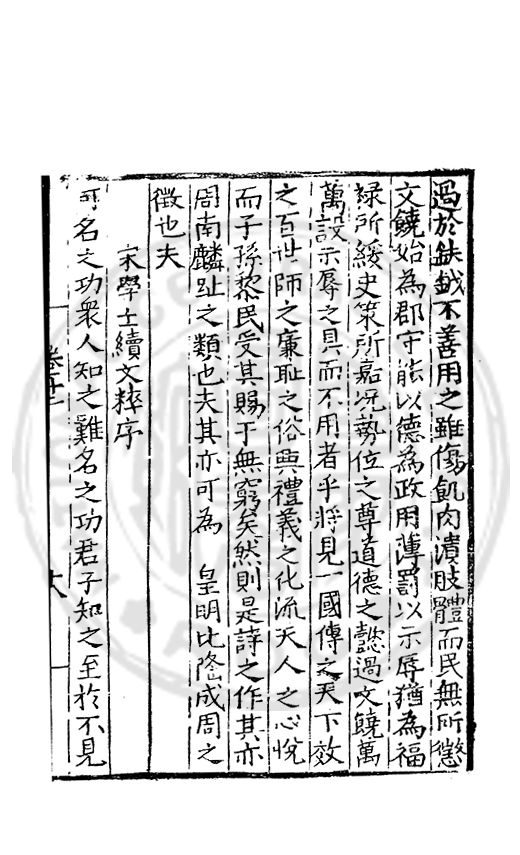 過於鈇鉞不善用之雖傷飢肉潰肢體而民無所懲
文饒始為郡守能以德為政用薄罰以示辱猶為福
祿所綏史策所嘉况勢位之尊道德之懿過文饒萬
萬設示辱之具而不用者乎將見一國傳之天下效
之百世師之廉耻之俗興禮義之化流天人之心悅
而子孫黎民受其賜于無窮矣然則是詩之作其亦
周南麟趾之類也夫其亦可為　皇明比隆成周之
徵也夫
宋學士續文粹序
可名之功衆人知之難名之功君子知之至於不見